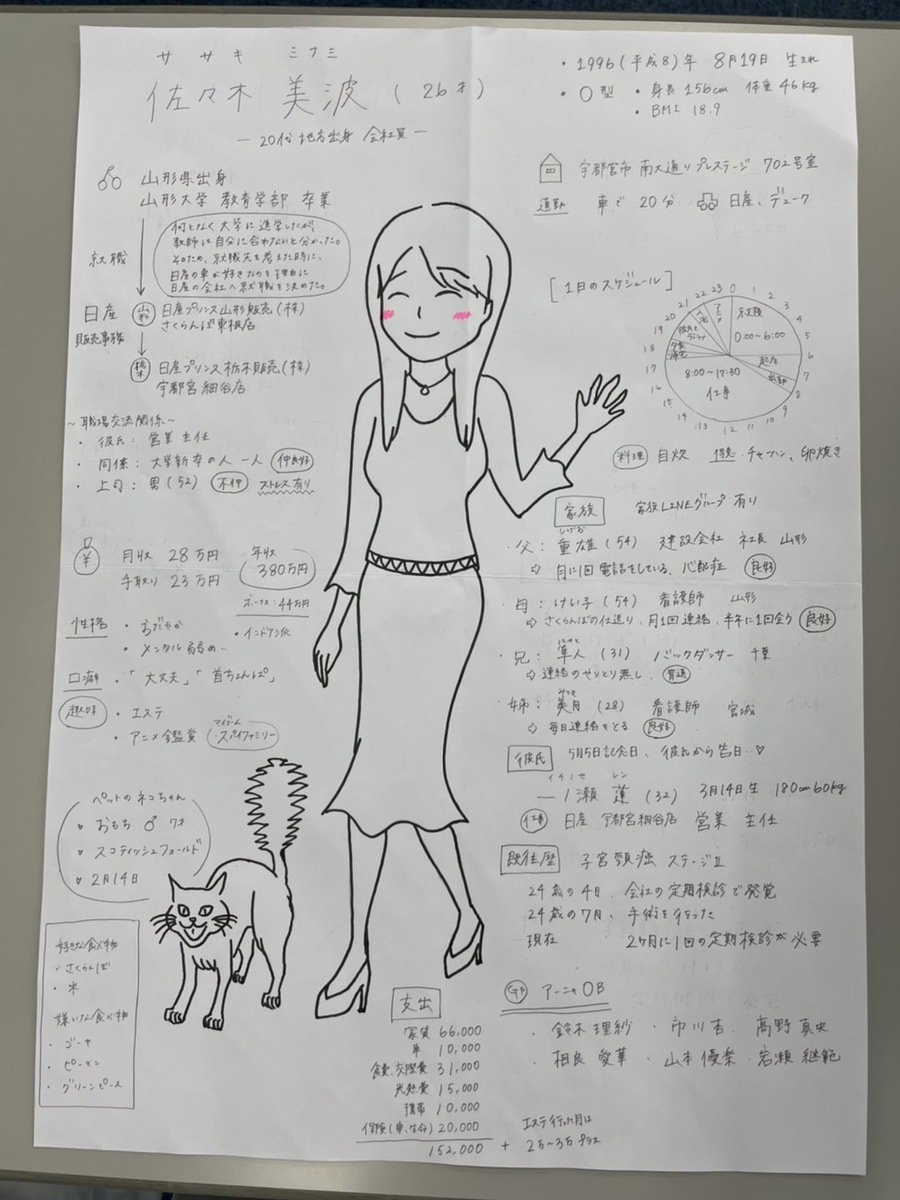 ササキ ミナミ
佐々木 美波 (26才)
― 20代 地方出身 会社員 ―
・1996(平成8)年 8月19日 生まれ
・O型 ・身長 156cm 体重 46kg
・BMI 18.9
山形県出身
山形大学 教育学部 卒業
何となく大学に進学したが、
教師は自分に合わないと分かった。
そのため、就職先を考えた時に、
日産の車が好きなのを理由に
日産の会社へ就職を決めた。
就職
日産
販売事務
山形
日産プリンス山形販売(株)
さくらんぼ東根店
栃木
日産プリンス栃木販売(株)
宇都宮細谷店
~職場交流関係~
・彼氏: 営業主任
・同係: 大学新卒の人 一人 仲良好
・上司: 男(52) 不仲 ストレス有り
¥
月収 28万円
手取り 23万円
年収
380万円
ボーナス:44万円
性格
・おだやか
・メンタル弱め…
・インドア派
口癖 ・「大丈夫」「首ちょんぱ」
趣味
・エステ
・アニメ鑑賞
マイブーム
・スパイファミリー
ペットのネコちゃん
おもち ♂ 7才
スコティッシュフォールド
2月14日
好きな食べ物
・さくらんぼ
・米
嫌いな食べ物
・ゴーヤ
・ピーマン
・グリーンピース
宇都宮市 南大通り プレステージ 702号室
通勤 車で 20分 日産、デューク
[1日のスケジュール]
0 1 2 3 4 5 6 7 8 9 10 11 12 13 14 15 16 17 18 19 20 21 22 23
就寝
0:00~6:00
起床
出勤
8:00~17:30
仕事
帰宅
夕食
アニメ
料理 自炊 得意 チャーハン、卵焼き
家族 家族LINEグループ 有り
しげお
・父: 重雄(54) 建設会社 社長 山形
⇨ 月に1回電話をしている、心配症 良好
・母: けい子(54) 看護師 山形
⇨ さくらんぼの仕送り、月1回連絡、半年に1回会う 良好
はやと
・兄: 隼人(31) バックダンサー 千葉
⇨ 連絡のやりとり無し、普通
みつき
・姉: 美月(28) 看護師 宮城
⇨ 毎日連絡をとる 良好
彼氏 5月5日記念日、彼氏から告白…♡
イチノセ レン
一ノ瀬 蓮(32) 3月14日生 180cm 60kg
仕事 日産 宇都宮細谷店 営業 主任
既往歴 子宮頸癌 ステージⅡ
24歳の4月、会社の定期検診で発覚
24歳の7月、手術を行った
現在 2ヶ月に1回の定期検診が必要
支出
家賃 66,000
車 10,000
食費、交際費 31,000
光熱費 15,000
携帯 10,000
保険(車、生命) 20,000
152,000 + エステ行った月は
2万~3万 プラス
アーニャOB
・鈴木 理紗 ・市川 杏 ・髙野 真央
・相良 愛華 ・山本 優菜 ・岩瀬 継範